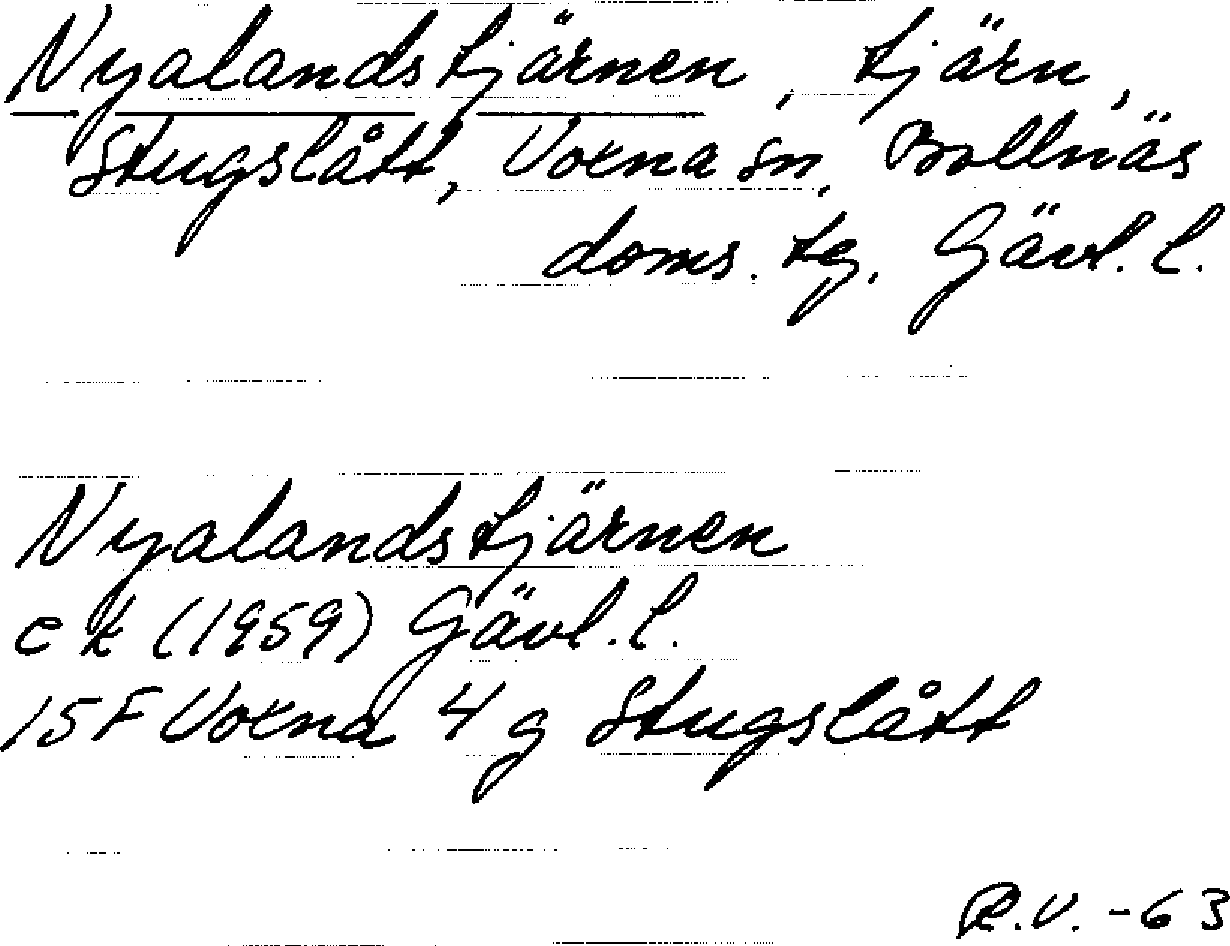 Nyalandstjärnen, tjärn,
Stugslått, Voxna sn, Bollnäs
doms. tg. Gävl. l.
Nyalandstjärnen
ek (1959) Gävl. l.
15F Voxna 4 g Stugslått
R.V. -63